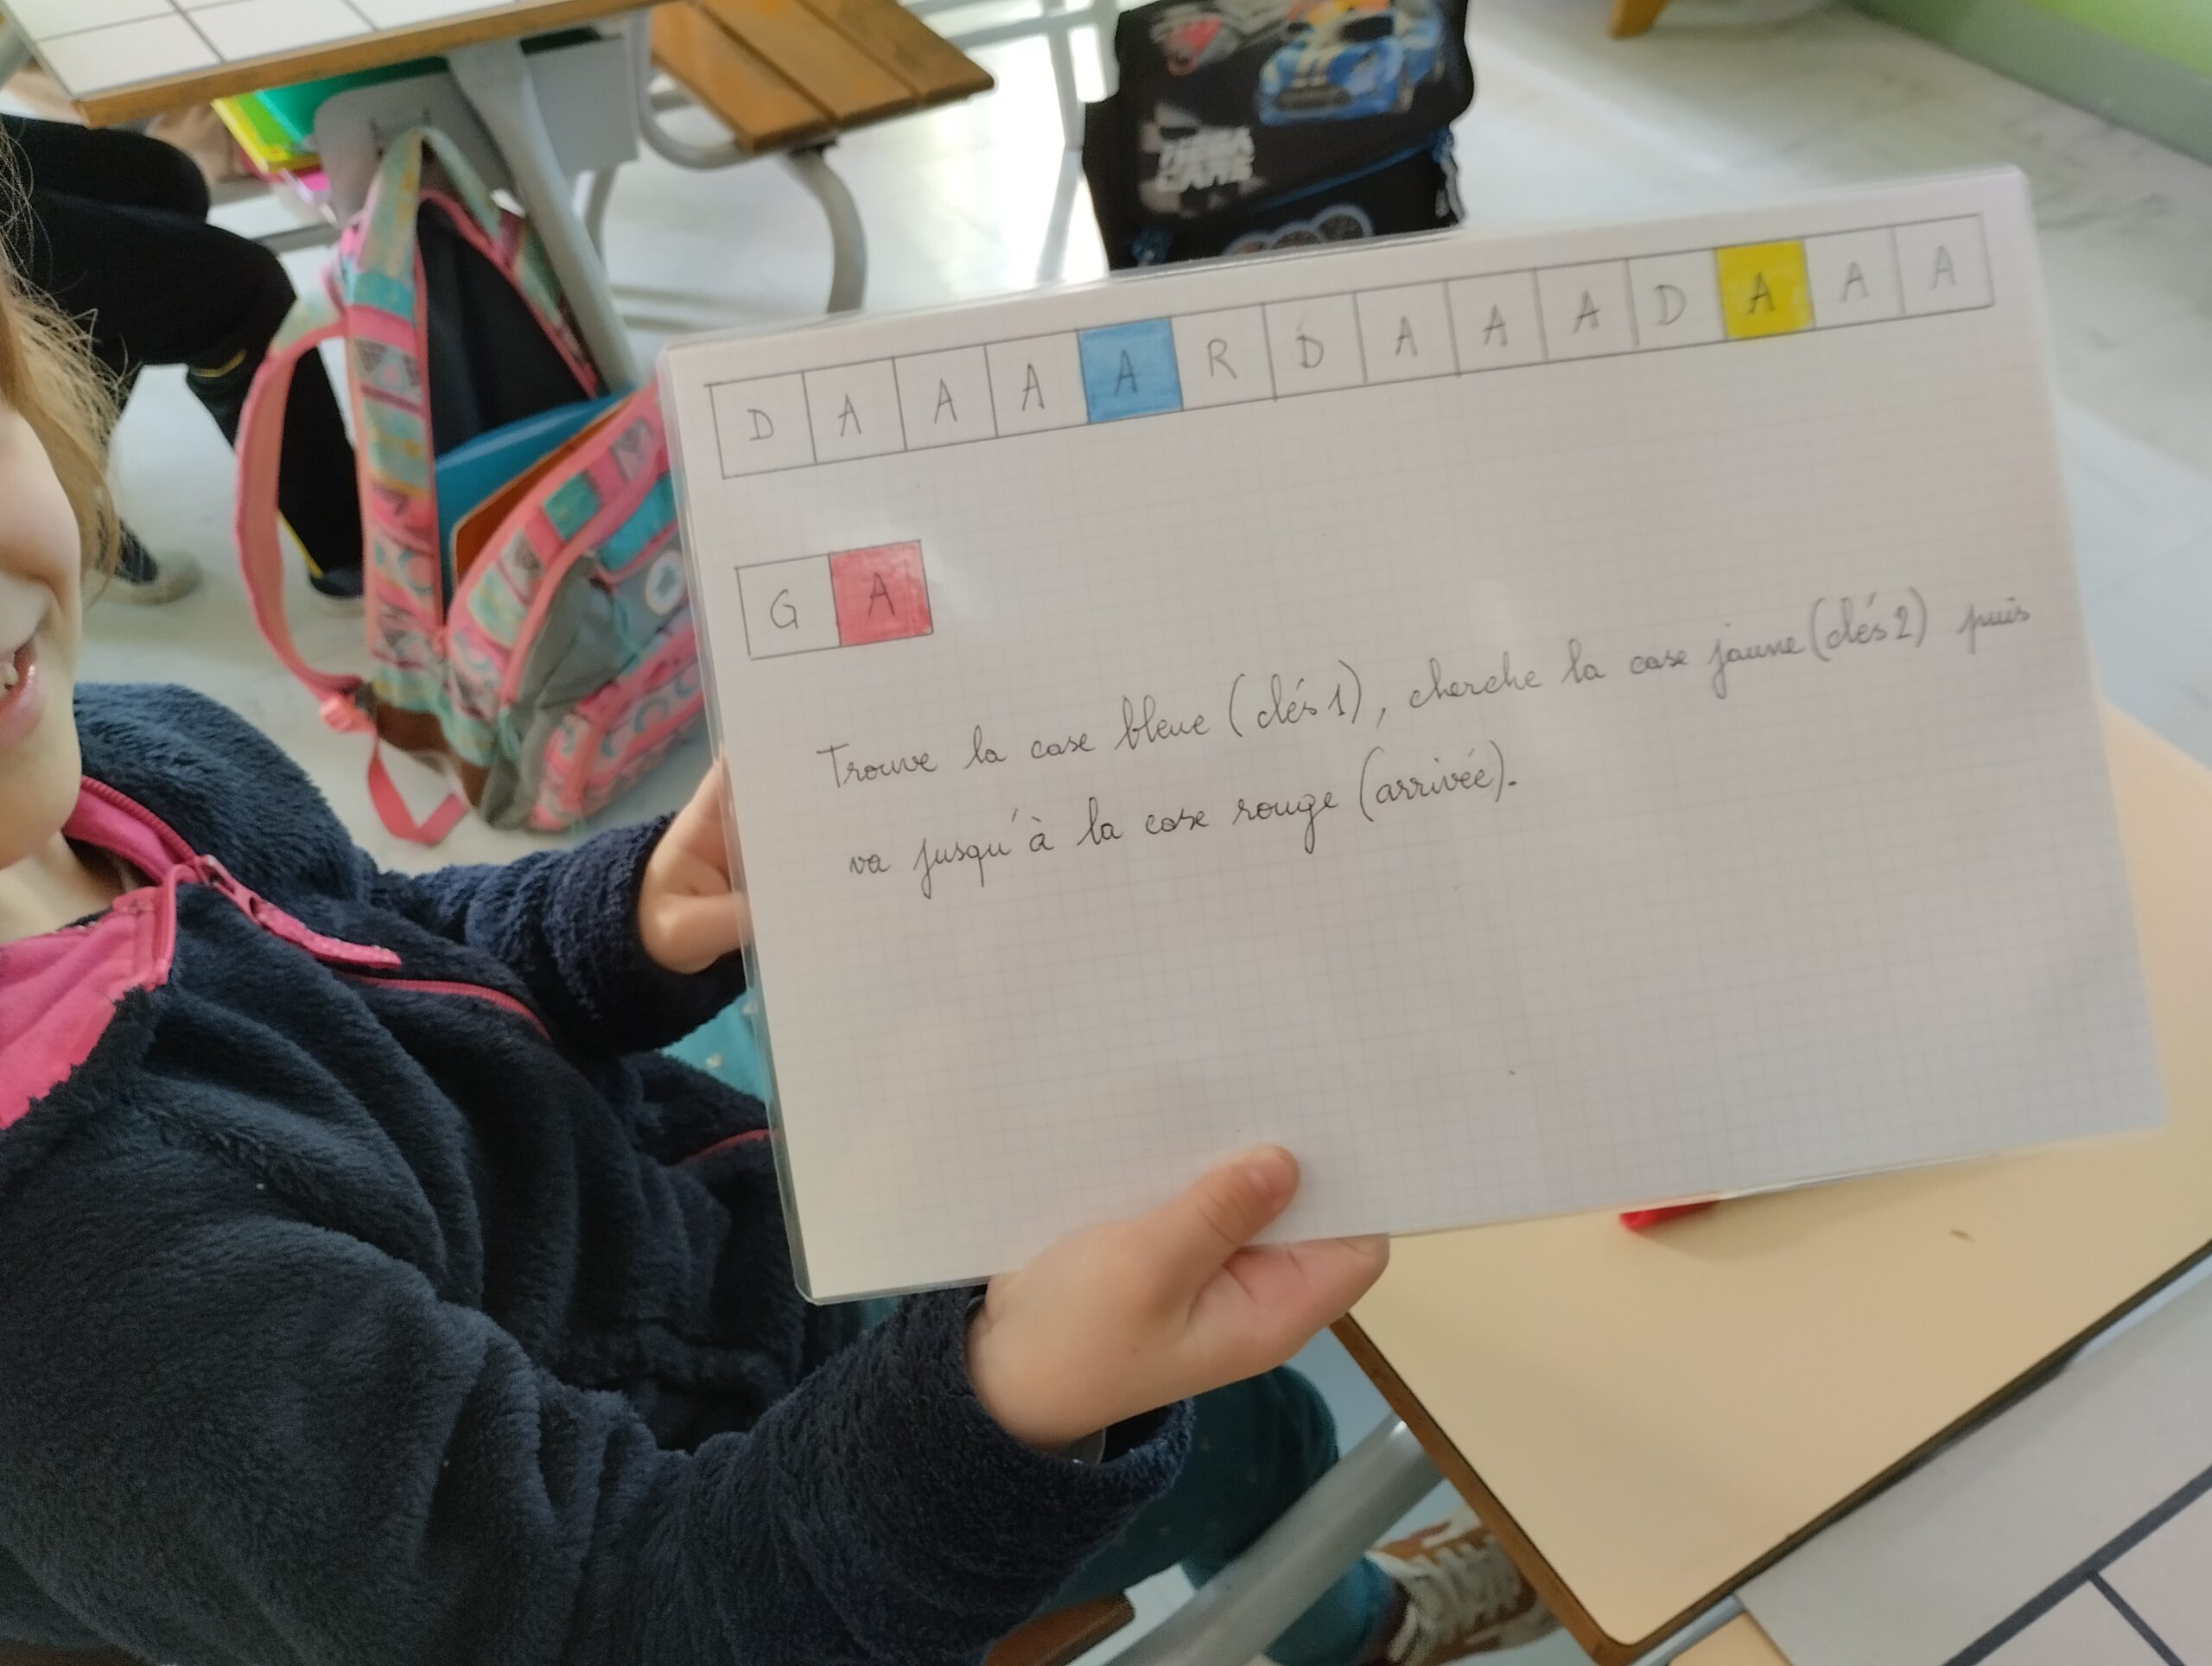 D A A A A R D A A A D A A A
G A
Trouve la case bleue (clés 1), cherche la case jaune (clés 2) puis
va jusqu'à la case rouge (arrivée).